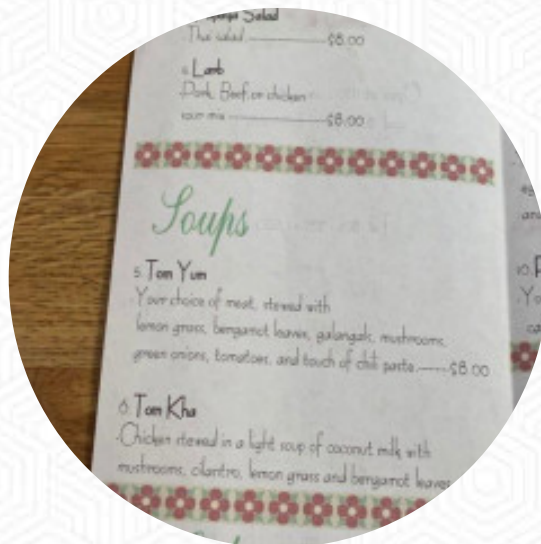 Salad
Thai salad $8.00
4. Larb
Pork, Beef, or chicken
sour mix $8.00
Soups
5. Tom Yum
Your choice of meat, stewed with
lemon grass, bergamot leaves, galangals, mushrooms,
green onions, tomatoes, and touch of chili paste. $8.00
6. Tom Kha
Chicken stewed in a light soup of coconut milk with
mushrooms, cilantro, lemon grass and bergamot leaves
10.